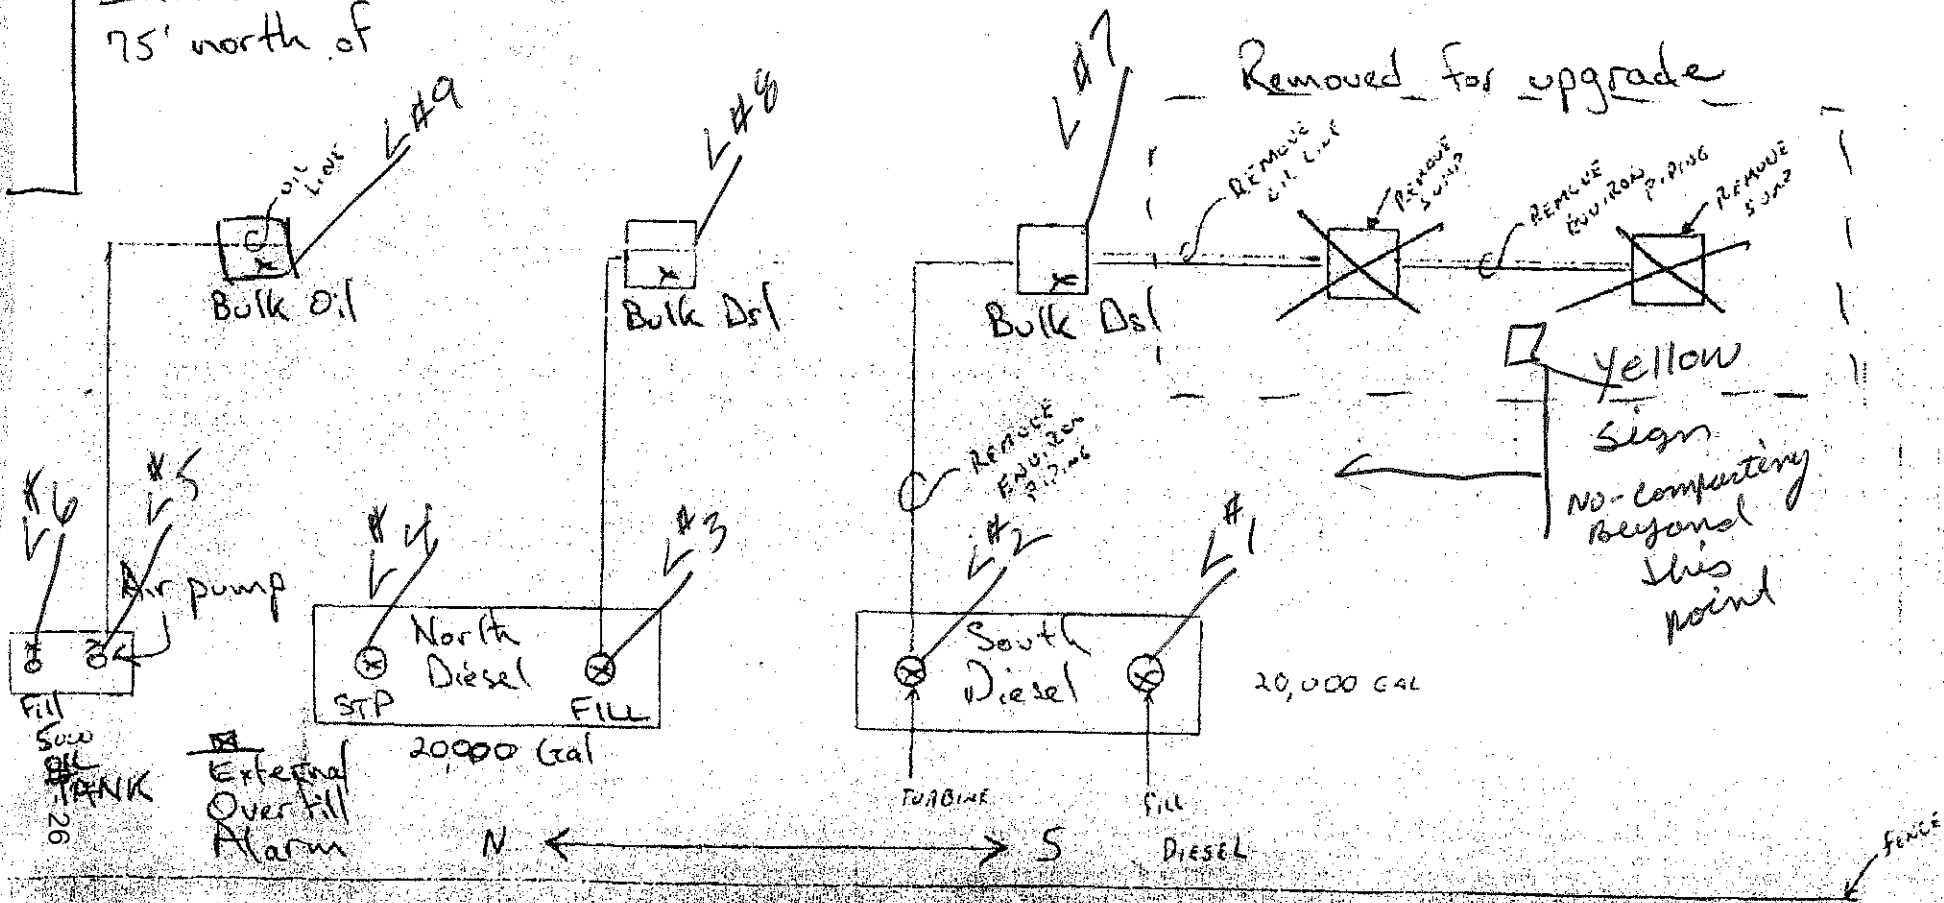 75' north of
Removed for upgrade
#9
#8
#7
OIL
LINE
REMOVE
OIL LINE
REMOVE
SUMP
REMOVE
ENVIRON PIPING
REMOVE
SUMP
Bulk Oil
Bulk Dsl
Bulk Dsl
Yellow
Sign
No-Comparteny
Beyond
this
point
REMOVE
ENVIRON
PIPING
#6
#5
#4
#3
#2
#1
Air pump
North
Diesel
South
Diesel
STP
FILL
20,000 GAL
Fill
OIL
TANK
20,000 Gal
External
Overfill
Alarm
TURBINE
Fill
DIESEL
N
S
FENCE
26